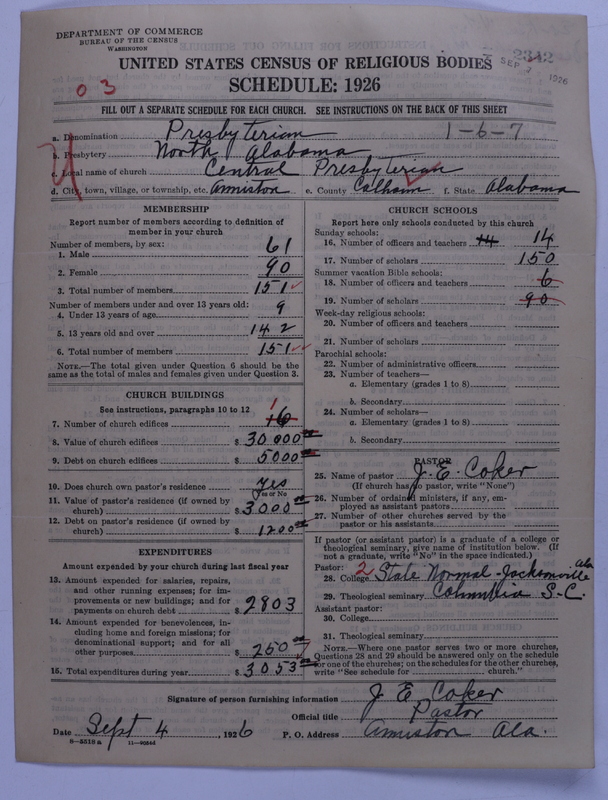 DEPARTMENT OF COMMERCE
BUREAU OF THE CENSUS
WASHINGTON
2342
SEP 7 1926
UNITED STATES CENSUS OF RELIGIOUS BODIES
SCHEDULE: 1926
03
FILL OUT A SEPARATE SCHEDULE FOR EACH CHURCH. SEE INSTRUCTIONS ON THE BACK OF THIS SHEET
a. Denomination Presbyterian 1-6-7
b. Presbytery North Alabama
c. Local name of church Central Presbyterian
d. City, town, village, or township, etc. Anniston e. County Calhoun f. State Alabama
MEMBERSHIP
Report number of members according to definition of member in your church
Number of members, by sex:
1. Male 61
2. Female 90
3. Total number of members 151
Number of members under and over 13 years old:
4. Under 13 years of age 9
5. 13 years old and over 142
6. Total number of members 151
NOTE.—The total given under Question 6 should be the same as the total of males and females given under Question 3.
CHURCH BUILDINGS
See instructions, paragraphs 10 to 12
7. Number of church edifices 1
8. Value of church edifices $ 30000
9. Debt on church edifices $ 5000
10. Does church own pastor's residence Yes
Yes or No
11. Value of pastor's residence (if owned by church) $ 3000
12. Debt on pastor's residence (if owned by church) $ 1200
EXPENDITURES
Amount expended by your church during last fiscal year
13. Amount expended for salaries, repairs, and other running expenses; for improvements or new buildings; and for payments on church debt $ 2803
14. Amount expended for benevolences, including home and foreign missions; for denominational support; and for all other purposes $ 250
15. Total expenditures during year $ 3053
CHURCH SCHOOLS
Report here only schools conducted by this church
Sunday schools:
16. Number of officers and teachers 14 14
17. Number of scholars 150
Summer vacation Bible schools:
18. Number of officers and teachers 6
19. Number of scholars 90
Week-day religious schools:
20. Number of officers and teachers
21. Number of scholars
Parochial schools:
22. Number of administrative officers
23. Number of teachers—
a. Elementary (grades 1 to 8)
b. Secondary
24. Number of scholars—
a. Elementary (grades 1 to 8)
b. Secondary
PASTOR
25. Name of pastor J. E. Coker
(If church has no pastor, write "None")
26. Number of ordained ministers, if any, employed as assistant pastors
27. Number of other churches served by the pastor or his assistants
If pastor (or assistant pastor) is a graduate of a college or theological seminary, give name of institution below. (If not a graduate, write "No" in the space indicated.)
Pastor: 2
28. College State Normal - Jacksonville Ala
29. Theological seminary Columbia S-C.
Assistant pastor:
30. College
31. Theological seminary
NOTE.—Where one pastor serves two or more churches, Questions 28 and 29 should be answered only on the schedule for one of the churches; on the schedules for the other churches, write "See schedule for ........ church."
Signature of person furnishing information J E Coker
Official title Pastor
Date Sept 4, 1926 P. O. Address Anniston Ala.
8-5518a